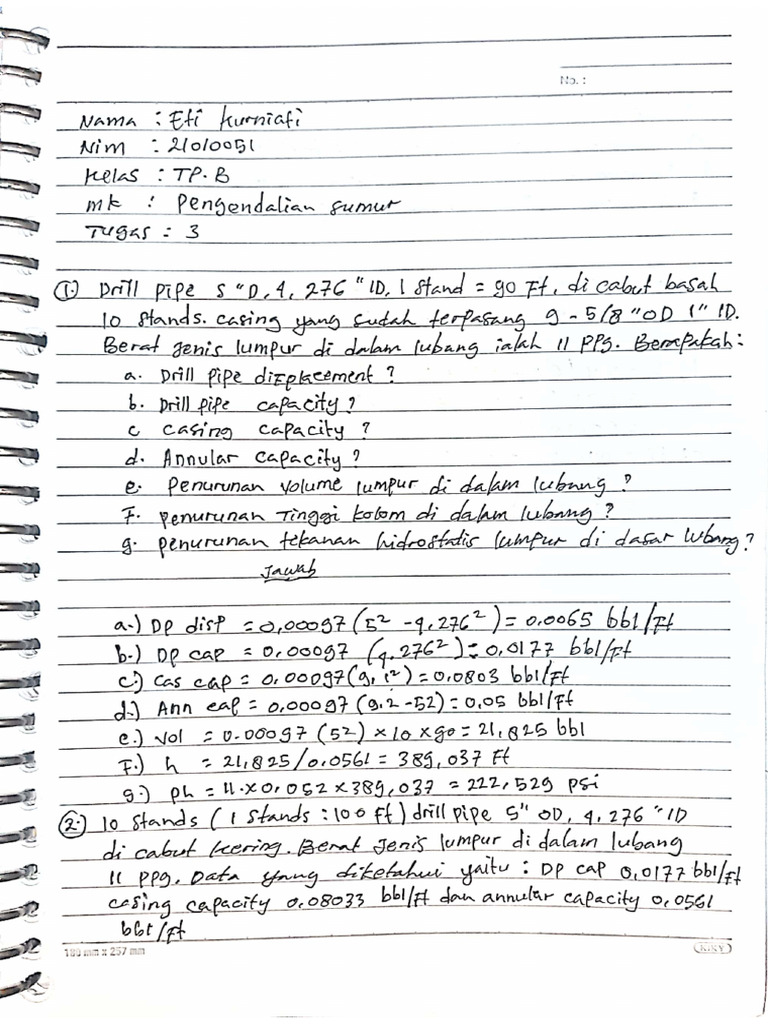 No. :
Nama : Eti Kurniati
Nim : 21010051
Kelas : TP. B
mk : Pengendalian sumur
Tugas : 3
① Drill pipe 5 "D, 4, 276 " ID, 1 Stand = 90 Ft, di cabut basah
10 stands. casing yang sudah terpasang 9 - 5/8 "OD 1" ID.
Berat Jenis lumpur di dalam lubang ialah 11 ppg. Berapakah :
a. Drill pipe displacement ?
b. Drill pipe capacity ?
c casing capacity ?
d. Annular capacity ?
e. Penurunan volume lumpur di dalam lubang ?
F. penurunan Tinggi kolom di dalam lubang ?
g. penurunan tekanan hidrostatis lumpur di dasar lubang ?
Jawab
a.) Dp disp = 0,00097 (5² - 4.276²) = 0.0065 bbl/Ft
b.) Dp cap = 0.00097 (4.276²) = 0,0177 bbl/Ft
c.) Cas cap = 0.00097 (9,1²) = 0.0803 bbl/Ft
d.) Ann cap = 0.00097 (9.2 - 52) = 0.05 bbl/Ft
e.) Vol = 0.00097 (52) x 10 x 90 = 21,825 bbl
F.) h = 21,825 / 0.0561 = 389, 037 Ft
g.) ph = 11 x 0,052 x 389,037 = 222,529 psi
② 10 Stands ( 1 Stands : 100 Ft ) drill pipe 5" OD, 4,276 " ID
di cabut kering. Berat Jenis lumpur di dalam lubang
11 ppg. Data yang diketahui yaitu : DP cap 0,0177 bbl/Ft
casing capacity 0.08033 bbl/Ft dan annular capacity 0,0561
bbl/Ft
180 mm x 257 mm
KIKY